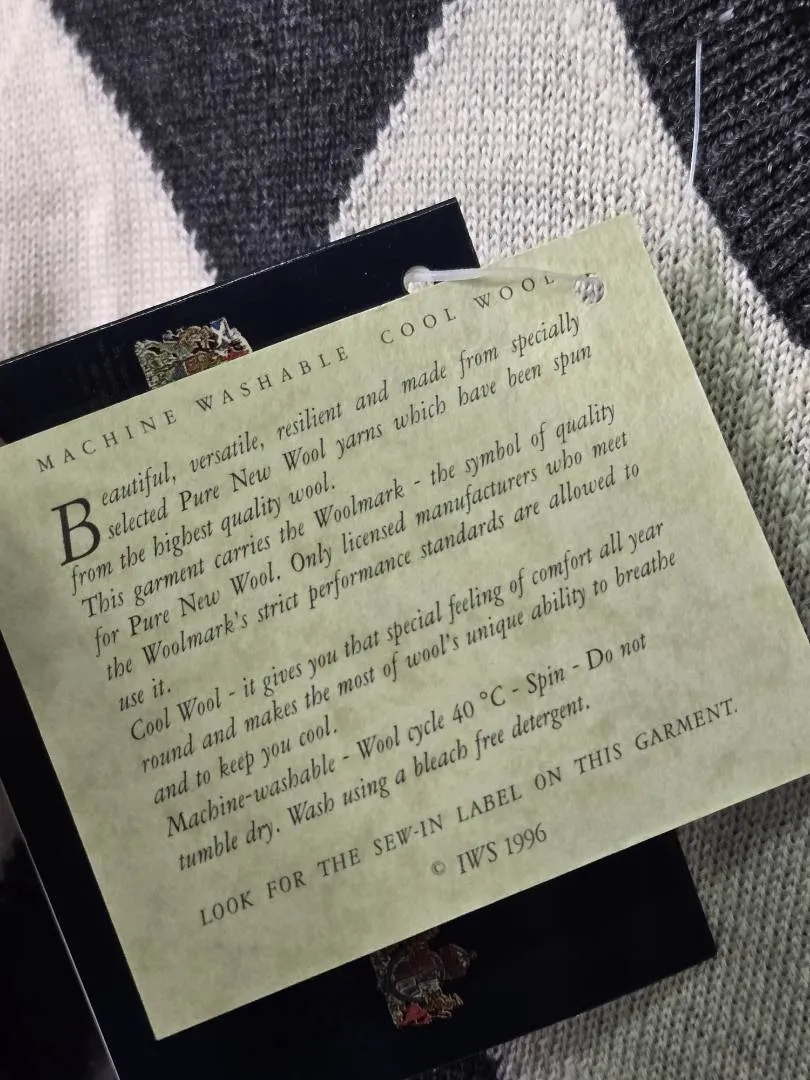 MACHINE WASHABLE COOL WOOL
Beautiful, versatile, resilient and made from specially
selected Pure New Wool yarns which have been spun
from the highest quality wool.
This garment carries the Woolmark - the symbol of quality
for Pure New Wool. Only licensed manufacturers who meet
the Woolmark's strict performance standards are allowed to
use it.
Cool Wool - it gives you that special feeling of comfort all year
round and makes the most of wool's unique ability to breathe
and to keep you cool.
Machine-washable - Wool cycle 40 °C - Spin - Do not
tumble dry. Wash using a bleach free detergent.
LOOK FOR THE SEW-IN LABEL ON THIS GARMENT.
© IWS 1996